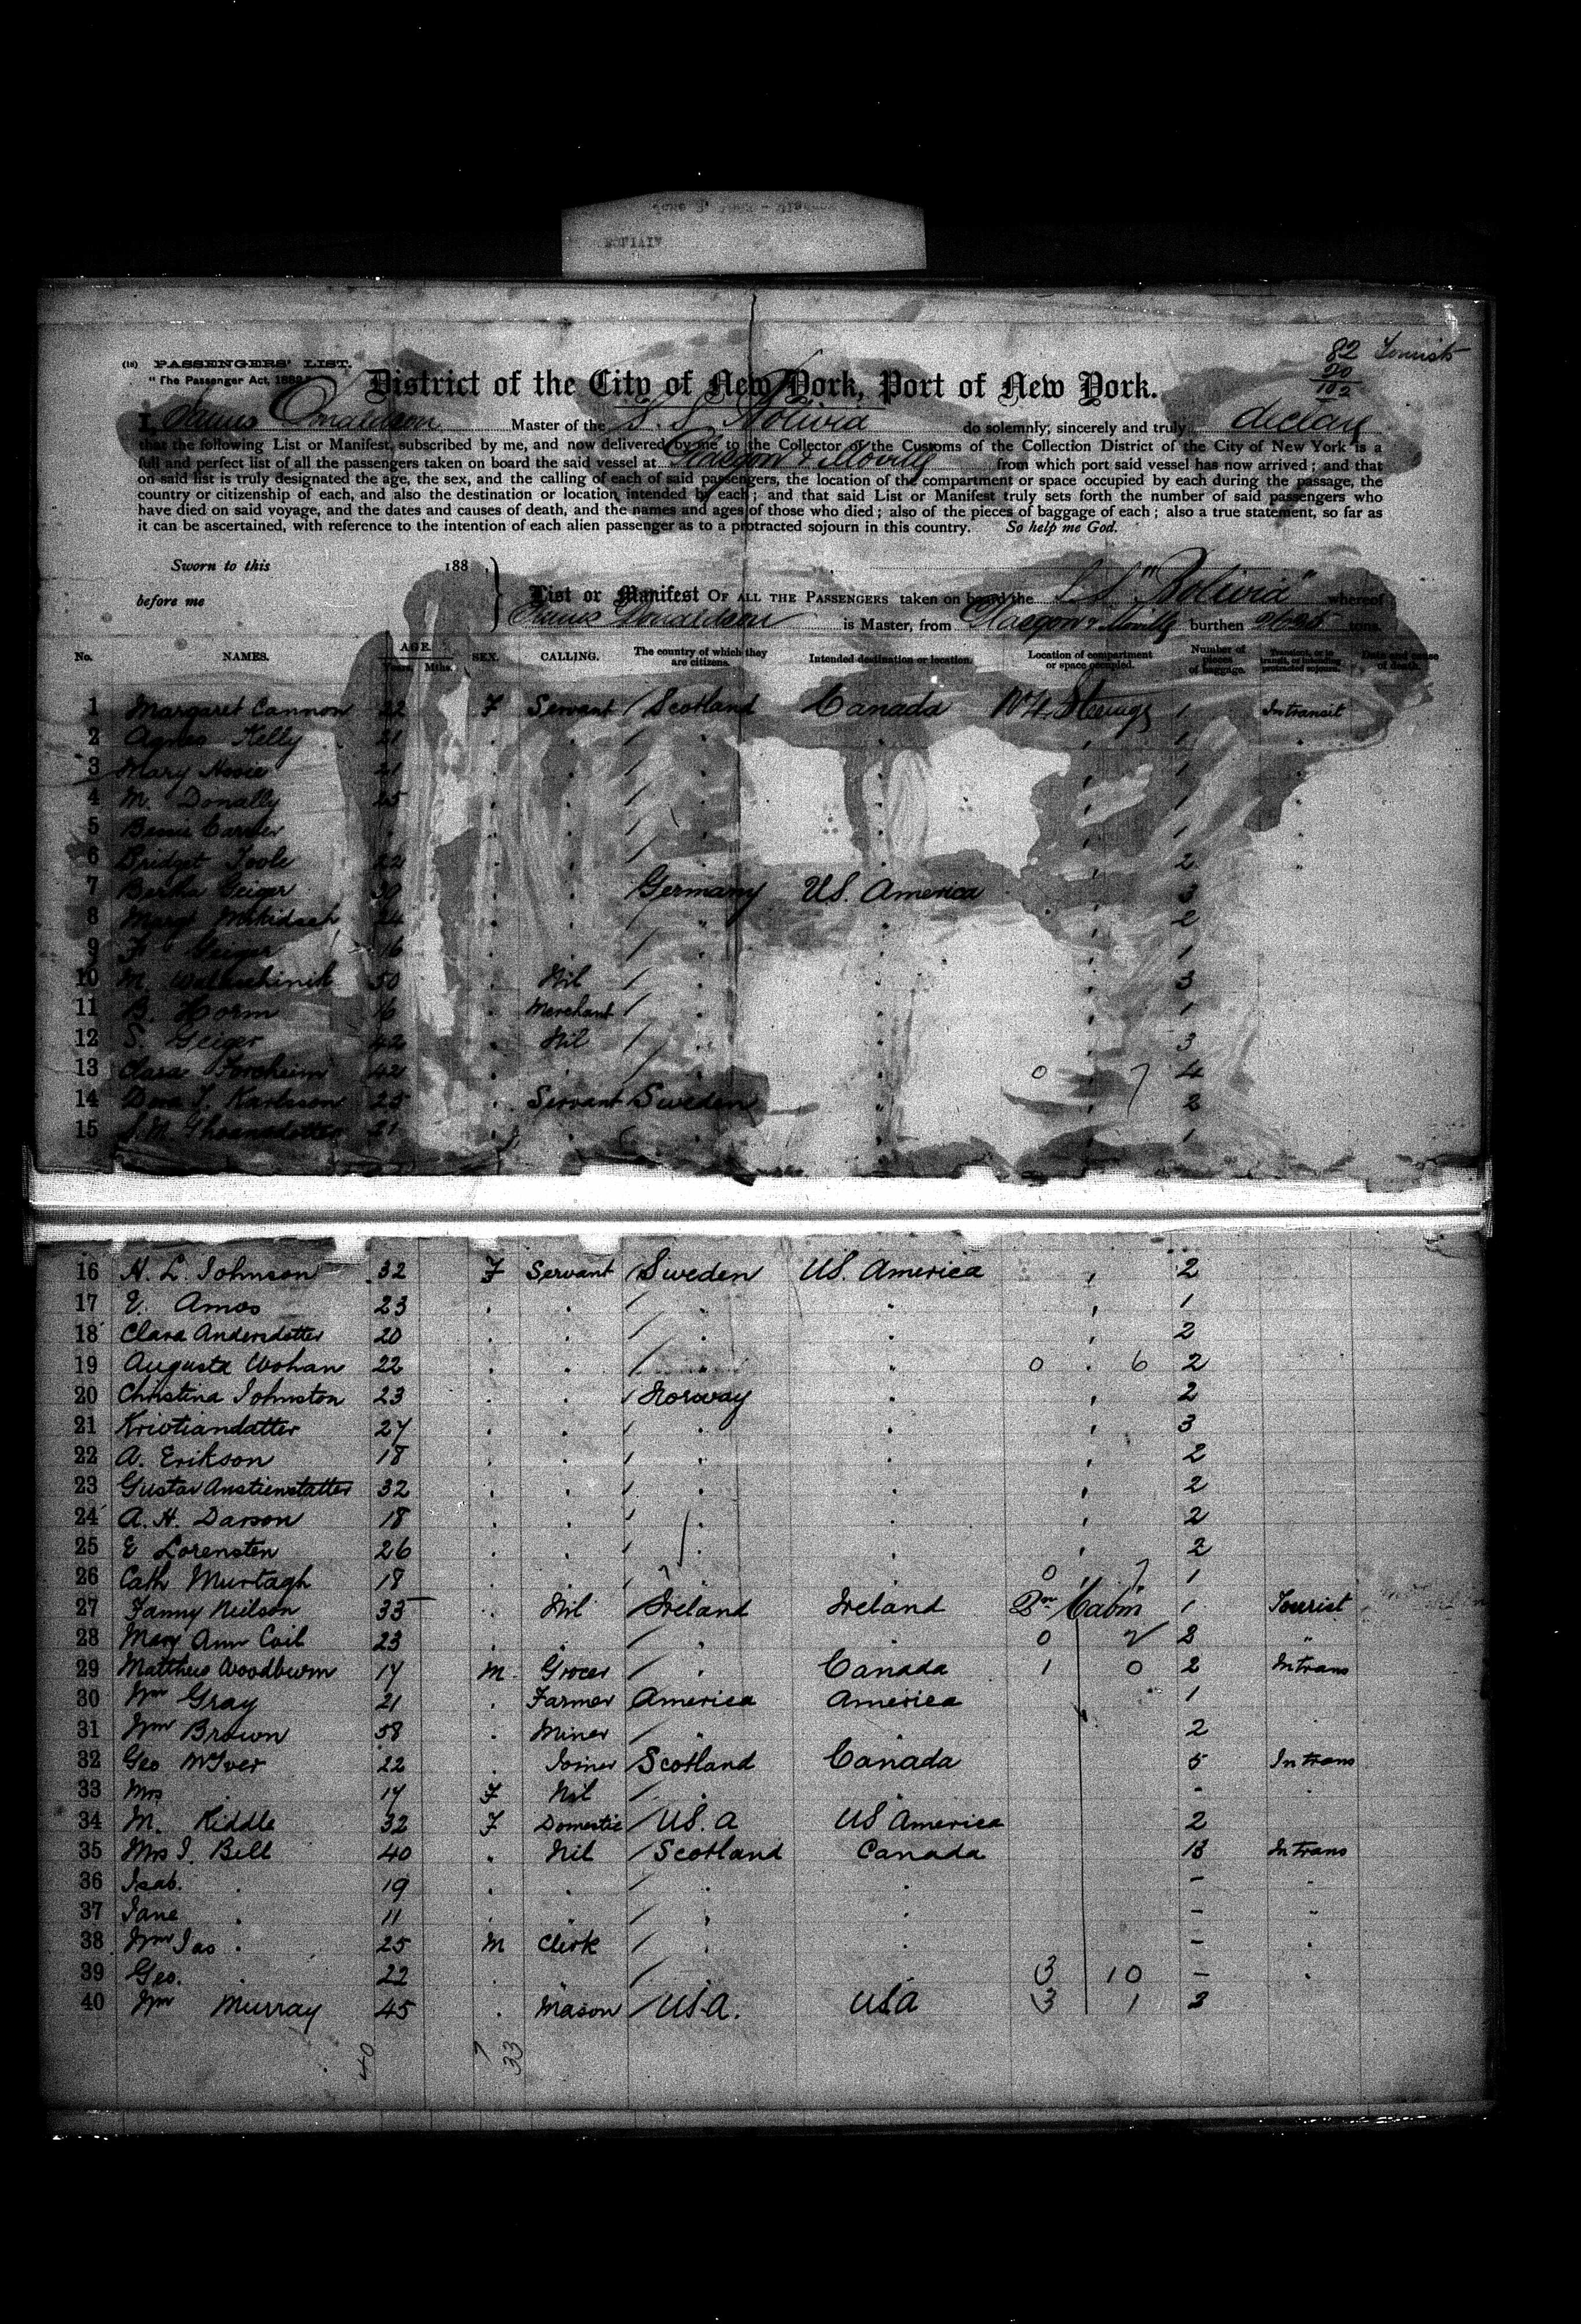 82 Tourists
20
102
(18) PASSENGERS' LIST.
"The Passenger Act, 1882."
District of the City of New York, Port of New York.
I, James Donaldson Master of the S.S. Bolivia do solemnly, sincerely and truly declare
that the following List or Manifest, subscribed by me, and now delivered by me to the Collector of the Customs of the Collection District of the City of New York is a
full and perfect list of all the passengers taken on board the said vessel at Glasgow & Moville from which port said vessel has now arrived; and that
on said list is truly designated the age, the sex, and the calling of each of said passengers, the location of the compartment or space occupied by each during the passage, the
country or citizenship of each, and also the destination or location intended by each; and that said List or Manifest truly sets forth the number of said passengers who
have died on said voyage, and the dates and causes of death, and the names and ages of those who died; also of the pieces of baggage of each; also a true statement, so far as
it can be ascertained, with reference to the intention of each alien passenger as to a protracted sojourn in this country. So help me God.
Sworn to this 188
before me
List or Manifest OF ALL THE PASSENGERS taken on board the S.S. "Bolivia" whereof
James Donaldson is Master, from Glasgow & Moville burthen 2625 tons.
No. NAMES. AGE. Years. Mths. SEX. CALLING. The country of which they are citizens. Intended destination or location. Location of compartment or space occupied. Number of pieces of baggage. Transient, or in transit, or intending protracted sojourn. Date and cause of death.
1 Margaret Cannon 22 F Servant / Scotland Canada Steerage 1 In transit
2 Agnes Kelly 21 . . / . . . 1 .
3 Mary Howie 21 . . / . . . 1 .
4 M. Donally 25 . . / . . . 1 .
5 Bessie Carrier . . / . . . 1 .
6 Bridget Toole 22 . . / . . . 2 .
7 Bertha Geiger 30 . . Germany U.S. America . 3
8 Mary 24 . . / . . . 2
9 F Geiger 16 . . / . . . 1
10 M. 50 . Nil / . . . 3
11 B. Horm 16 . Merchant / . . . 1
12 S. Geiger 42 . Nil / . . . 3
13 Clara Forcheim 42 . . / . . 0 . 7 4
14 Karlsson 25 . Servant Sweden . . 2
15 21 . . . . . 1
16 H. L. Johnson 32 F Servant / Sweden U.S. America . 2
17 E. Amos 23 . . / . . . 1
18 Clara Andersdotter 20 . . / . . . 2
19 Augusta Wohan 22 . . / . . 0 . 6 2
20 Christina Johnston 23 . . / Norway . . 2
21 Kristiandatter 27 . . / . . . 3
22 A. Erikson 18 . . / . . . 2
23 Gustav Anstienstatter 32 . . / . . . 2
24 A. H. Darson 18 . . / . . . 2
25 E Lorensten 26 . . / . . . 2
26 Cath Murtagh 18 . . / . . 0 . 7 1
27 Fanny Neilson 33 . Nil / Ireland Ireland 2nd Cabin 1 Tourist
28 Mary Ann Coil 23 . . / . . 0 2 2 "
29 Matthew Woodburn 17 M Grocer / . Canada 1 0 2 In trans
30 Wm Gray 21 . Farmer America America 1
31 Wm Brown 58 . Miner / . . 2
32 Geo McIver 22 . Joiner Scotland Canada 5 In trans
33 Mrs . 17 F Nil / . . - .
34 M. Riddle 32 F Domestic / U.S.A U.S America 2
35 Mrs J. Bell 40 . Nil / Scotland Canada 13 In trans
36 Isab. . 19 . . / . . - "
37 Jane . 11 . . / . . - "
38 Wm Jas . 25 M Clerk / . . - .
39 Geo. . 22 . . / . . 3 10 - .
40 Wm Murray 45 . Mason / U.S.A. USA 3 1 2
40 7 33